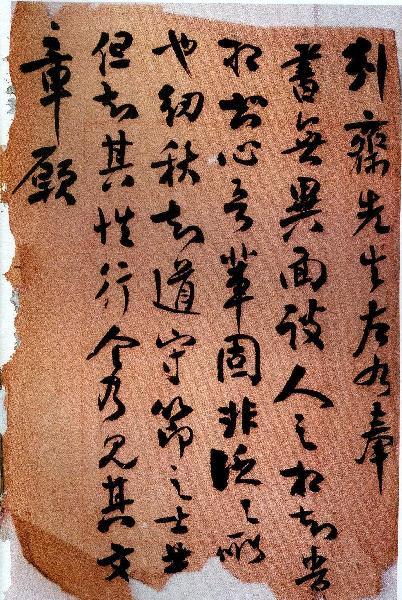 齋先生左右奉
書無異面談人之相知貴
相知心吾輩固非泛泛所
也紉秋知道守節之士世
但知其性行今乃見其文
章願